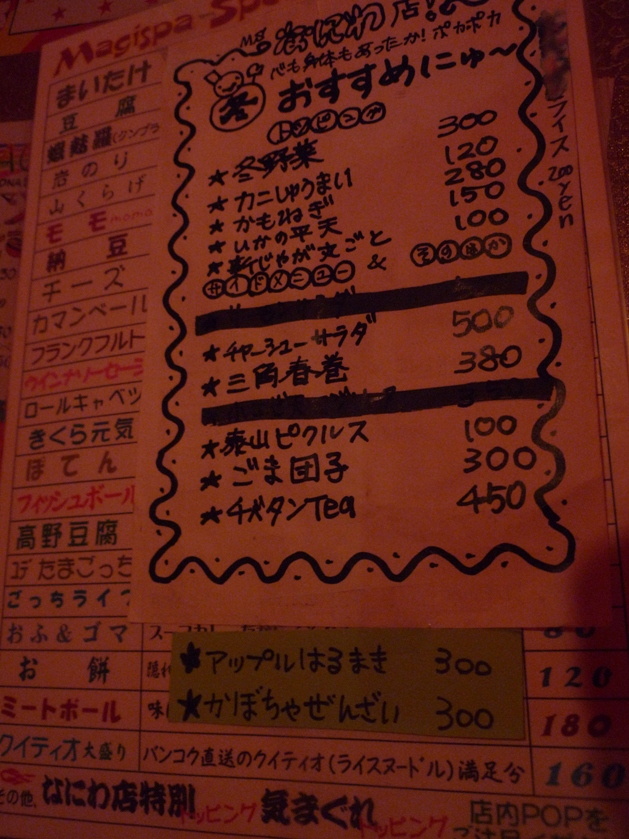 Magispa-Spe
まいたけ
豆腐
岩のり
山くらげ
モモ momo
納豆
チーズ
カマンベール
フランクフルト
ウインナソーセージ
ロールキャベツ
きくら元気
ぼてん
フィッシュボール
高野豆腐
たまごっち
ごっちライフ
おふ&ゴマ
お餅
ミートボール
クイティオ大盛り
なにわ店!
も身体もあったか!ポカポカ
冬 おすすめにゅ〜
トッピング
★冬野菜 300
★カニしゅうまい 120
★かもねぎ 280
★いかの平天 150
★新じゃが丸ごと 100
サイドメニュー & そのほか
★チャーシューサラダ 500
★三角春巻 380
★泰山ピクルス 100
★ごま団子 300
★チベタンTea 450
ライス 200yen
★アップルはるまき 300
★かぼちゃぜんざい 300
80
120
180
バンコク直送のクイティオ(ライスヌードル)満足分 160
その他、なにわ店特別トッピング 気まぐれトッピング 店内POPを